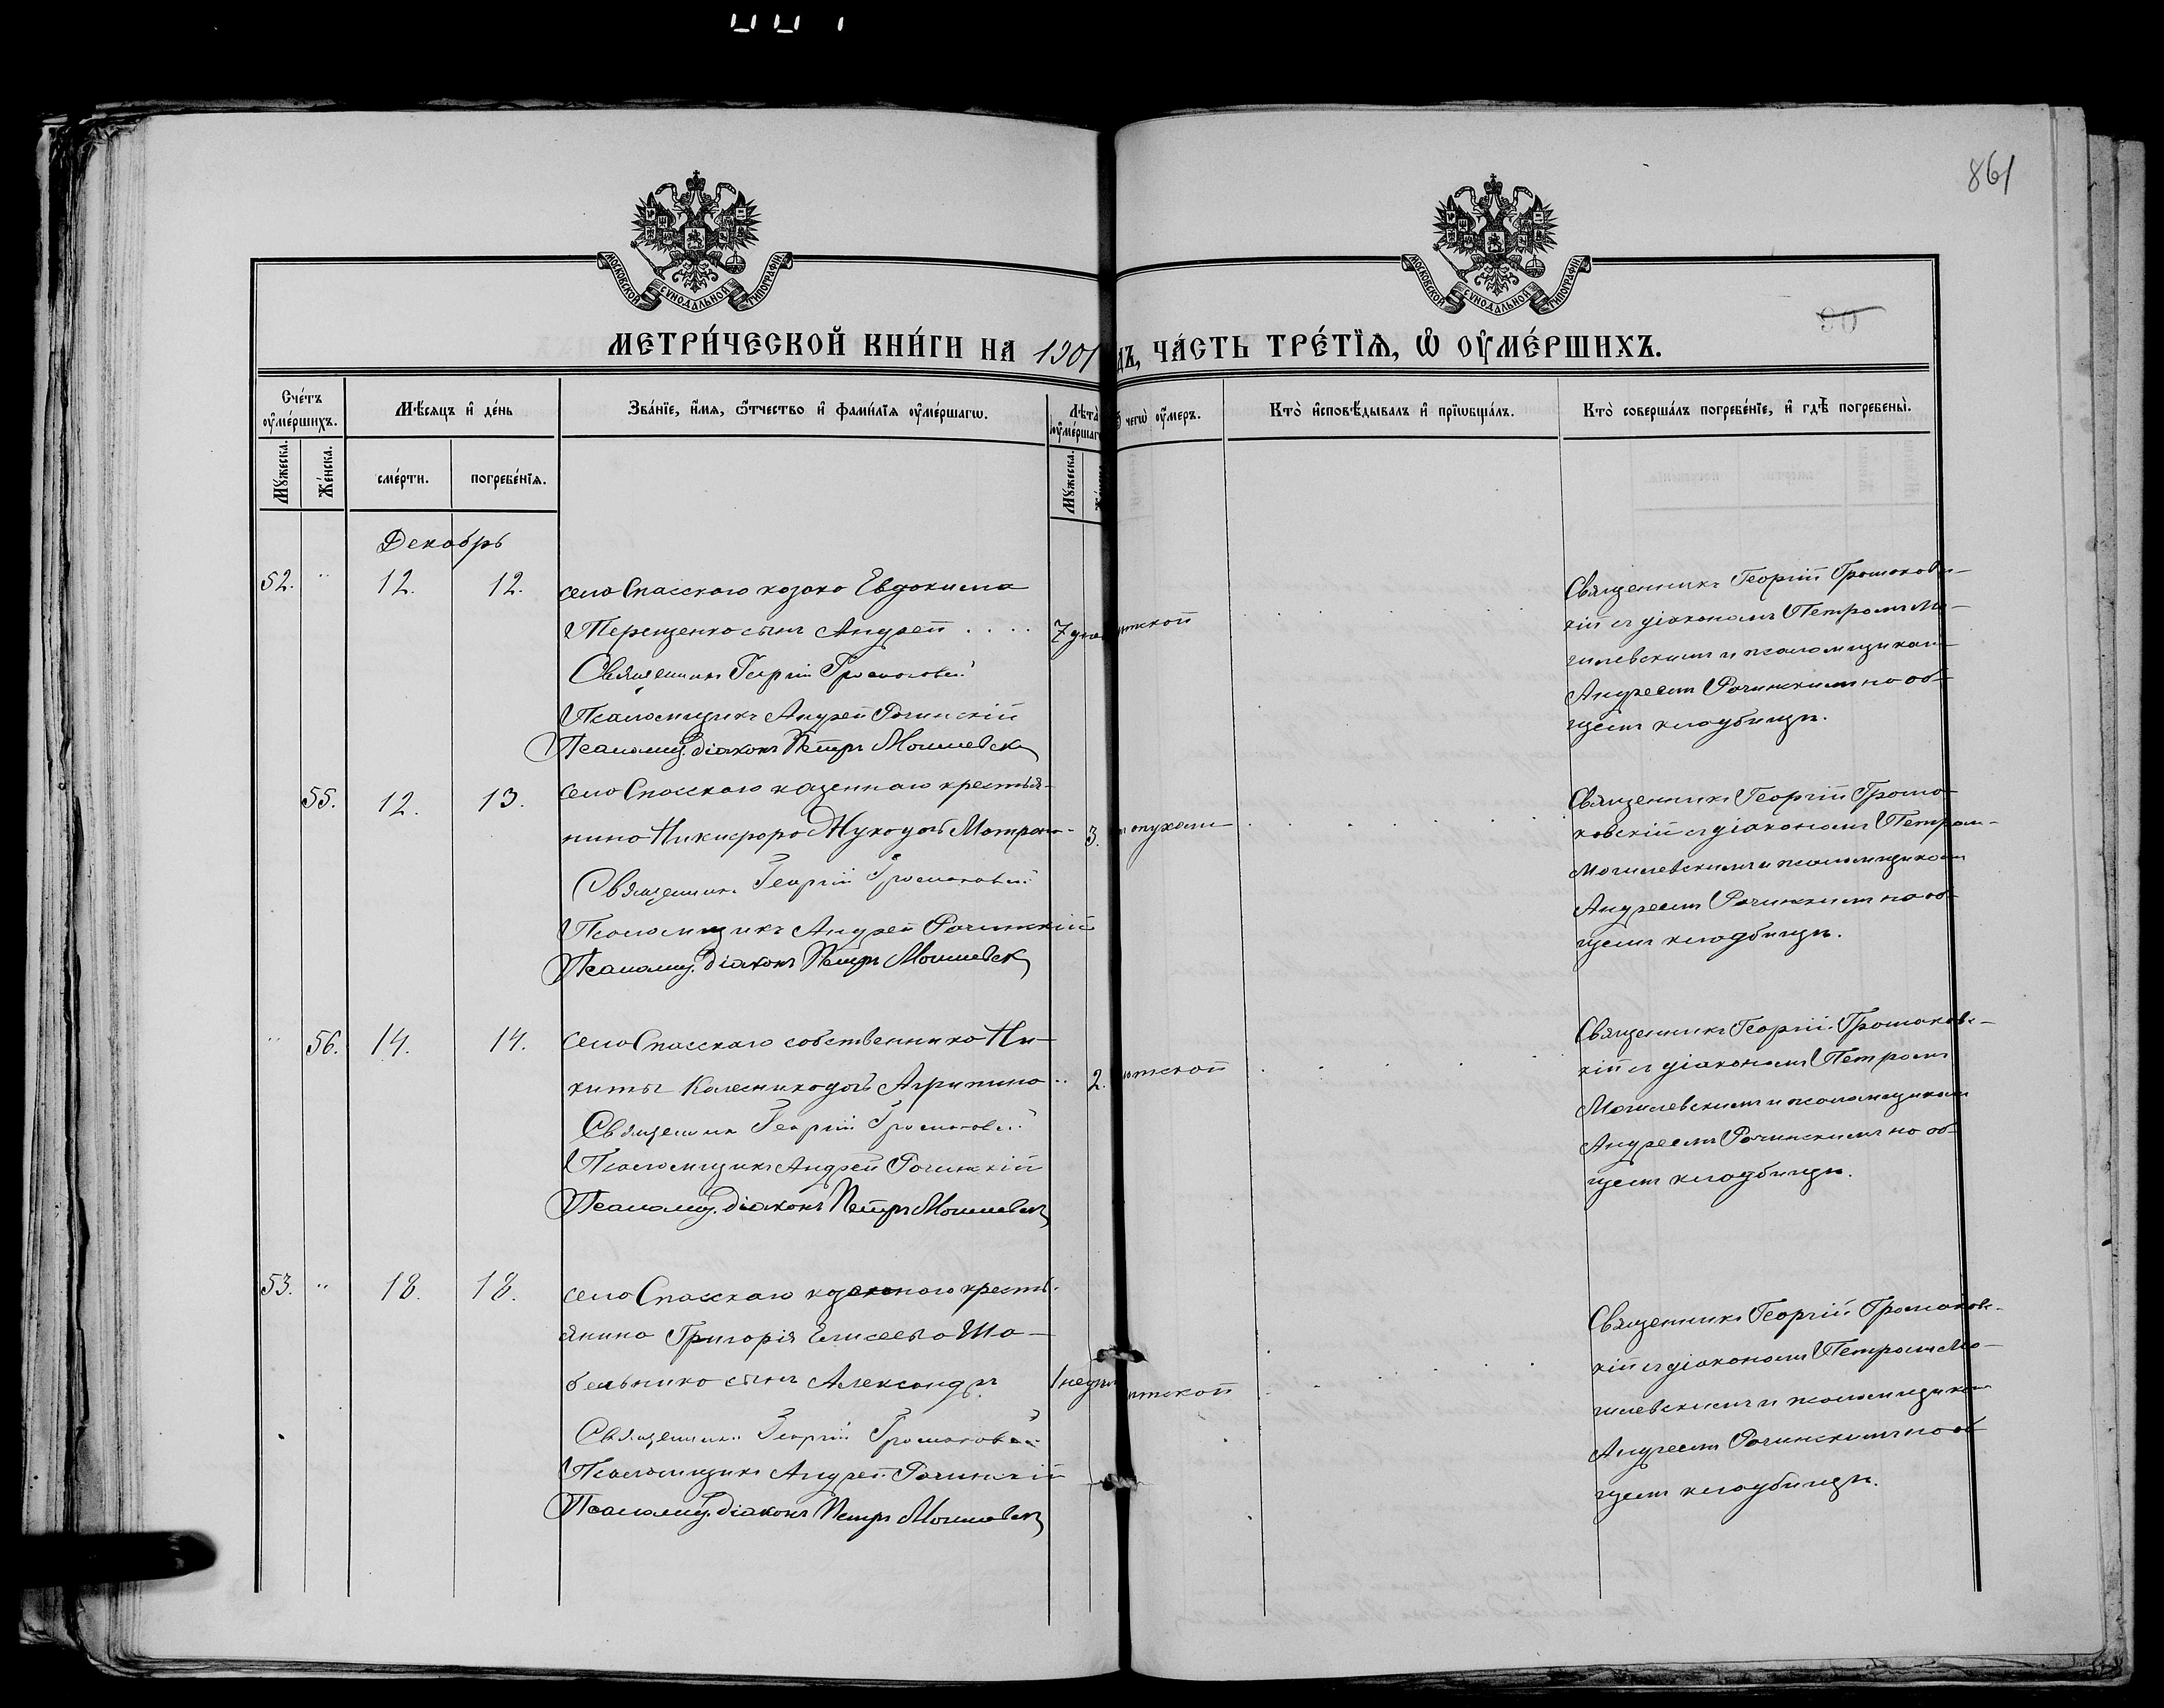 861
МОСКОВСКОЙ СѴНОДАЛЬНОЙ ТИПОГРАФІИ
МОСКОВСКОЙ СѴНОДАЛЬНОЙ ТИПОГРАФІИ
90
МЕТРИ́ЧЕСКОЙ КНИ́ГИ НА 1901 ДЪ, ЧА́СТЬ ТРЕ́ТЇѦ, Ѽ ОУ҆МЕ́РШИХЪ.
Сче́тъ оу҆ме́ршихъ.
Мѣ́сѧцъ и҆ де́нь
Зва́нїе, и҆́мѧ, ѻ҆́тчество и҆ фами́лїѧ оу҆ме́ршагѡ.
Лѣта̀ оу҆ме́ршаг
чегѡ̀ оу҆́меръ.
Кто̀ и҆сповѣ́дывалъ и҆ прїѡбща́лъ.
Кто̀ соверша́лъ погребе́нїе, и҆ гдѣ̀ погребены̀.
Мꙋ́жеска.
Же́нска.
сме́рти.
погребе́нїѧ.
Мꙋ́жеска.
Декабрь
52. " 12. 12. села Спасскаго козака Евдокима
Терещенко сынъ Андрей . . . . 7 дне тской
Священникъ Георгій Громаковскій
Псаломщикъ Андрей Рачинскій
Псаломщ. діаконъ Петръ Могилевскій
Священникъ Георгій Громаковс-
кій съ діакономъ Петромъ Мо-
гилевскимъ и псаломщикомъ
Андреемъ Рачинскимъ на об-
щемъ кладбищѣ.
55. 12. 13. села Спасскаго казеннаго крестья-
нина Никифора Жука дочь Матрона 3. опухоли
Священникъ Георгій Громаковскій
Псаломщикъ Андрей Рачинскій
Псаломщ. діаконъ Петръ Могилевскій
Священникъ Георгій Грома-
ковскій съ діакономъ Петромъ
Могилевскимъ и псаломщикомъ
Андреемъ Рачинскимъ на об-
щемъ кладбищѣ.
" 56. 14. 14. села Спасскаго собственника Ни-
киты Колесника дочь Агрипина 2. тской
Священникъ Георгій Громаковскій
Псаломщикъ Андрей Рачинскій
Псаломщ. діаконъ Петръ Могилевскій
Священникъ Георгій Громаковс-
кій съ діакономъ Петромъ
Могилевскимъ и псаломщикомъ
Андреемъ Рачинскимъ на об-
щемъ кладбищѣ.
53. " 18. 18. села Спасскаго казеннаго кресть-
янина Григорія Елисеева Ша-
бельника сынъ Александръ 1 недѣл тской
Священникъ Георгій Громаковскій
Псаломщикъ Андрей Рачинскій
Псаломщ. діаконъ Петръ Могилевскій
Священникъ Георгій Громаковс-
кій съ діакономъ Петромъ Мо-
гилевскимъ и псаломщикомъ
Андреемъ Рачинскимъ на об-
щемъ кладбищѣ.